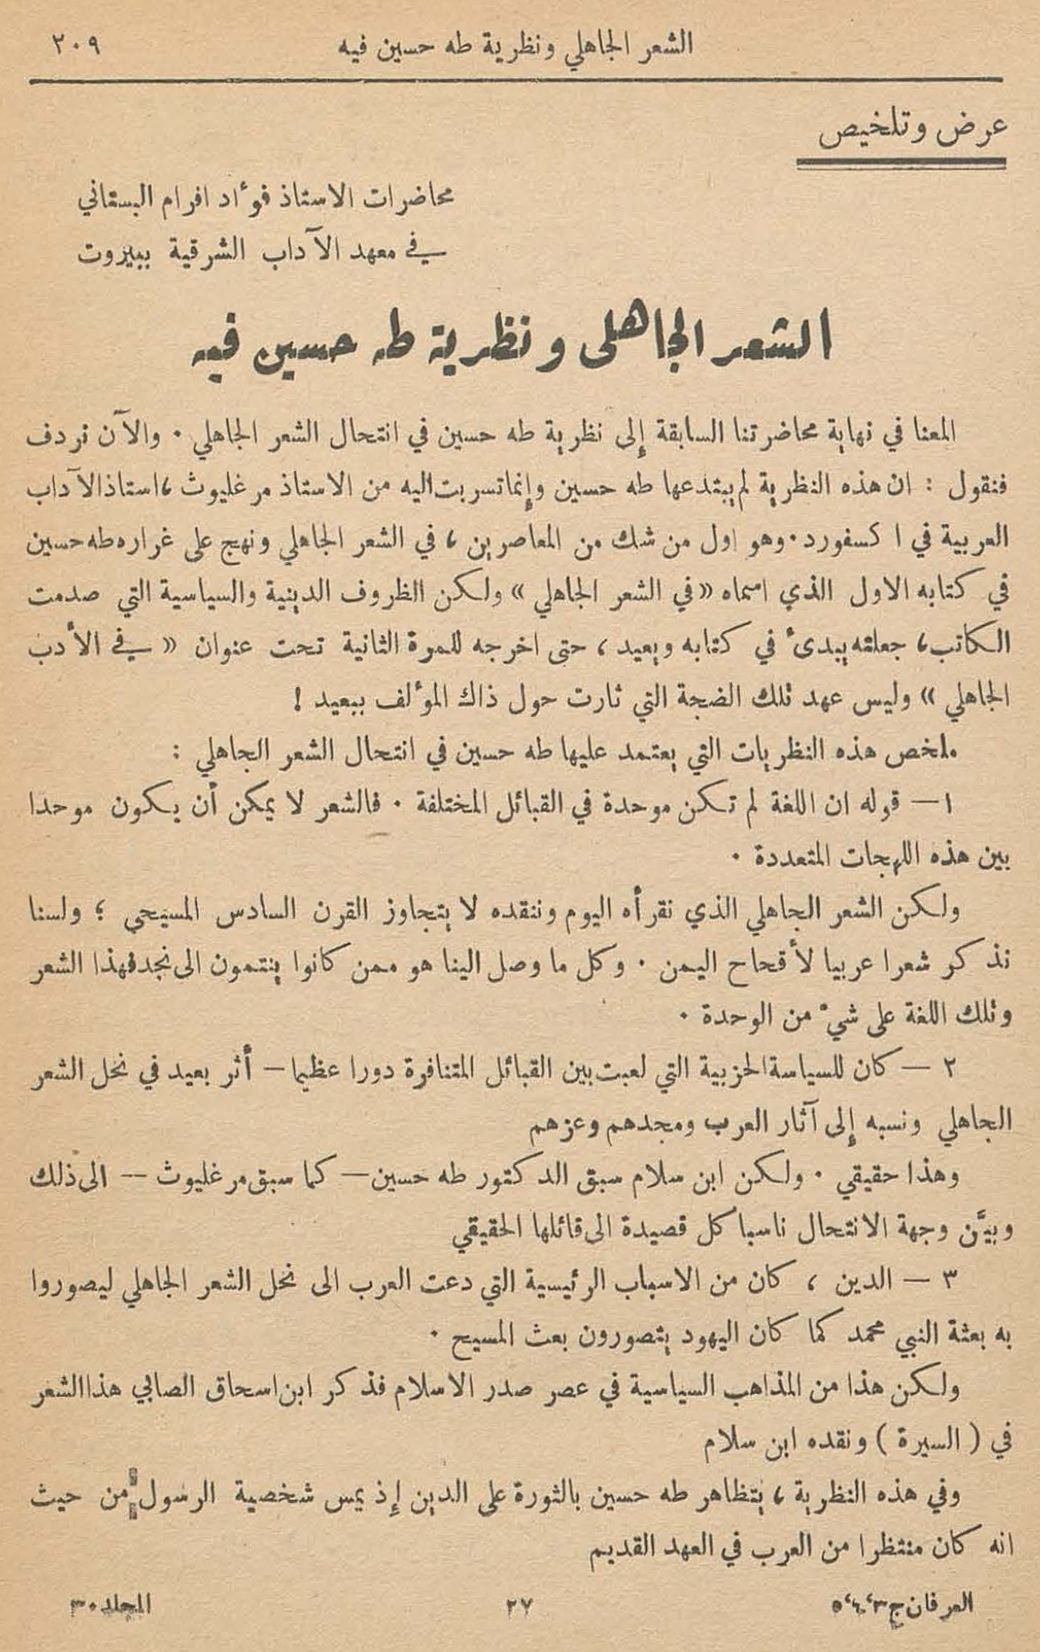 الشعر الجاهلي ونظرية طه حسين فيه
٢٠٩
عرض وتلخيص
محاضرات الاستاذ فوٴاد افرام البستاني
في معهد الآداب الشرقية ببيروت
الشعر الجاهلى ونظرية طه حسين فيه
المعنا في نهاية محاضرتنا السابقة إلى نظرية طه حسين في انتحال الشعر الجاهلي . والآن نردف
فنقول : ان هذه النظرية لم يبتدعها طه حسين وإنما تسربت اليه من الاستاذ مرغليوث ، استاذ الآداب
العربية في اكسفورد . وهو اول من شك من المعاصرين ، في الشعر الجاهلي ونهج على غراره طه حسين
في كتابه الاول الذي اسماه «في الشعر الجاهلي» ولكن الظروف الدينية والسياسية التي صدمت
الكاتب ، جعلته يبدئ في كتابه ويعيد ، حتى اخرجه للمرة الثانية تحت عنوان « في الأدب
الجاهلي » وليس عهد تلك الضجة التي ثارت حول ذاك الموٴلف ببعيد !
ملخص هذه النظريات التي يعتمد عليها طه حسين في انتحال الشعر الجاهلي :
١ — قوله ان اللغة لم تكن موحدة في القبائل المختلفة . فالشعر لا يمكن أن يكون موحدا
بين هذه اللهجات المتعددة .
ولكن الشعر الجاهلي الذي نقرأه اليوم وننقده لا يتجاوز القرن السادس المسيحي ؛ ولسنا
نذكر شعرا عربيا لأقحاح اليمن . وكل ما وصل الينا هو ممن كانوا ينتمون الى نجد فهذا الشعر
وتلك اللغة على شيء من الوحدة .
٢ — كان للسياسة الحزبية التي لعبت بين القبائل المتنافرة دورا عظيما — أثر بعيد في نحل الشعر
الجاهلي ونسبه إلى آثار العرب ومجدهم وعزهم
وهذا حقيقي . ولكن ابن سلام سبق الدكتور طه حسين — كما سبق مرغليوث — الى ذلك
وبيَّن وجهة الانتحال ناسبا كل قصيدة الى قائلها الحقيقي
٣ — الدين ، كان من الاسباب الرئيسية التي دعت العرب الى نحل الشعر الجاهلي ليصوروا
به بعثة النبي محمد كما كان اليهود يتصورون بعث المسيح .
ولكن هذا من المذاهب السياسية في عصر صدر الاسلام فذكر ابن اسحاق الصابي هذا الشعر
في ( السيرة ) ونقده ابن سلام
وفي هذه النظرية ، يتظاهر طه حسين بالثورة على الدين إذ يمس شخصية الرسول من حيث
انه كان منتظرا من العرب في العهد القديم
العرفان ج ٣،٤،٥
٢٧
المجلد ٣٠